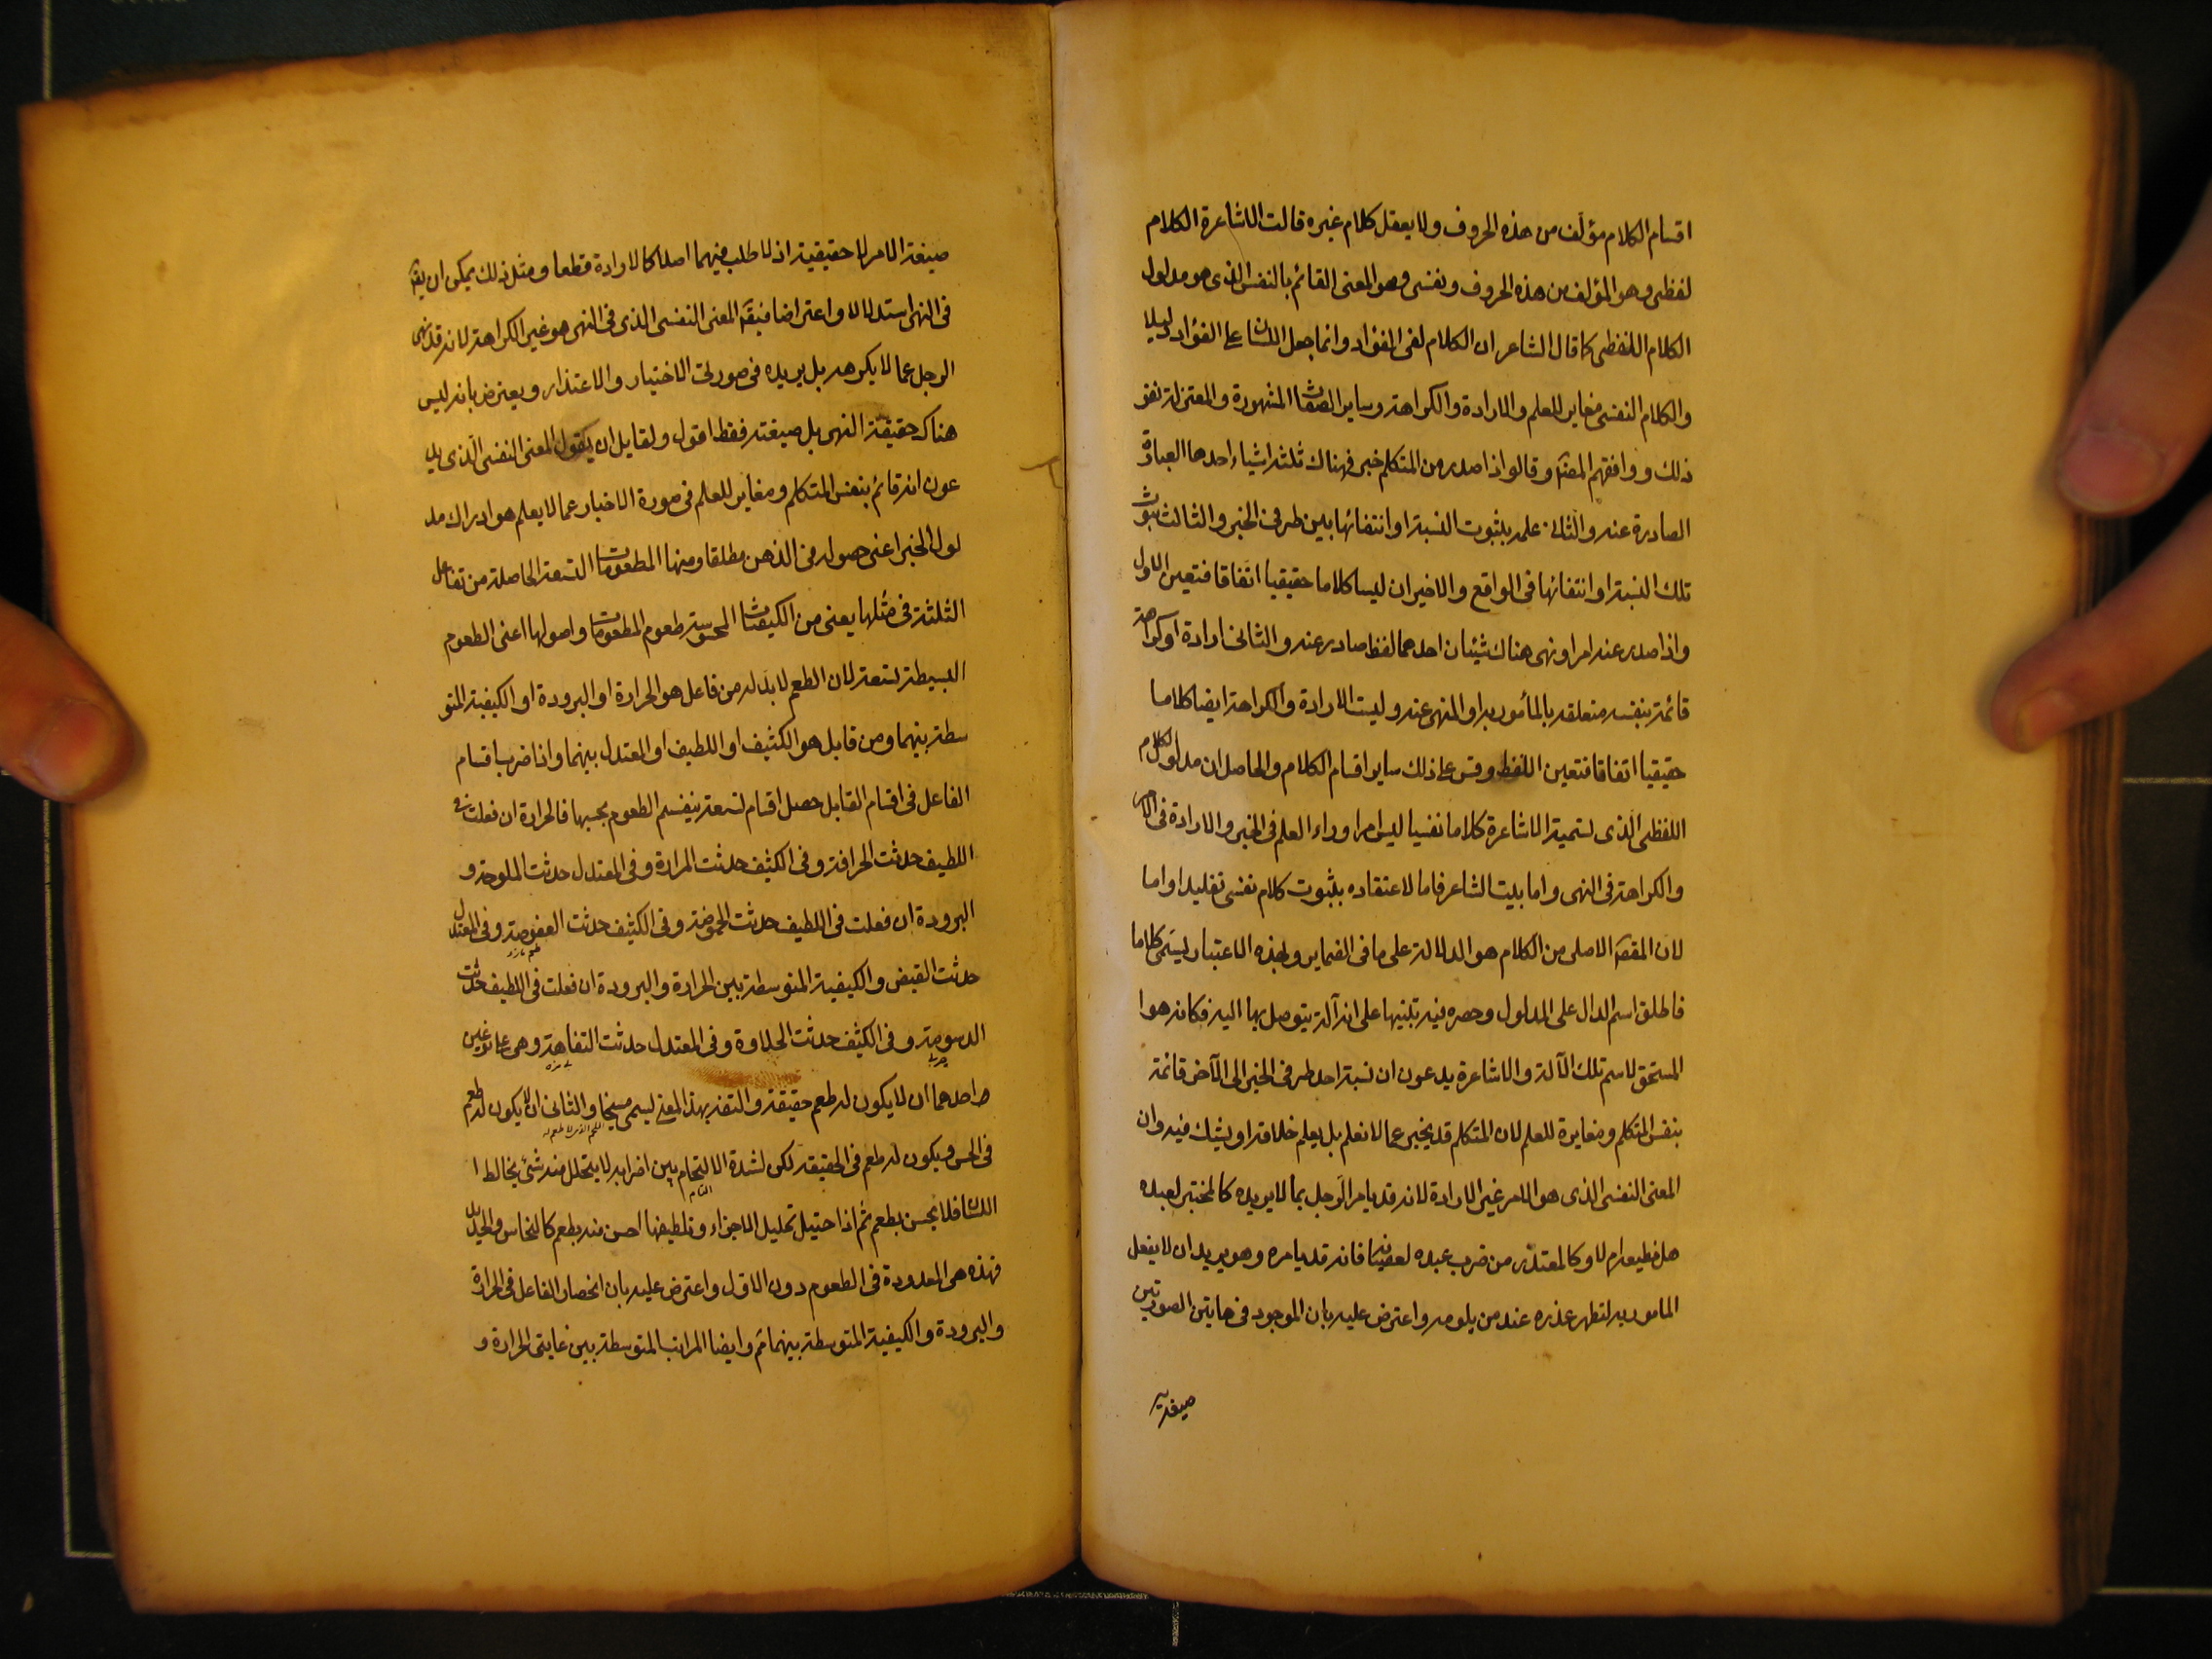 اقسام الكلام مؤلف من هذه الحروف ولا يعقل كلام غيره قالت الاشاعرة الكلام
لفظى وهو المؤلف من هذه الحروف ونفسى وهو المعنى القائم بالنفس الذى هو مدلول
الكلام اللفظى كما قال الشاعر ان الكلام لفى الفؤاد وانما جعل اللسان على الفؤاد دليلا
والكلام النفسى مغاير للعلم والارادة والكراهة وساير الصفات المشهورة والمعتزلة نفو
ذلك ووافقهم المصنف وقالوا اذا صدر من المتكلم خبر فهناك ثلثة اشياء احدها العبارة
الصادرة عنه والثانى علمه بثبوت النسبة او انتفائها بين طرفى الخبر والثالث ثبوت
تلك النسبة او انتفائها فى الواقع والاخيران ليسا كلاما حقيقيا اتفاقا فتعين الاول
واذا صدر عنه امر او نهى هناك شيئان احدهما لفظ صادر عنه والثانى ارادة او كراهة
قائمة بنفسه متعلقة بالمأمور به او المنهى عنه وليست الارادة والكراهة ايضا كلاما
حقيقيا اتفاقا فتعين اللفظ وقس على ذلك ساير اقسام الكلام والحاصل ان مدلول الكلام
اللفظى الذى تسميه الاشاعرة كلاما نفسيا ليس امرا وراء العلم فى الخبر والارادة فى الامر
والكراهة فى النهى واما بيت الشاعر فاما لاعتقاده بثبوت كلام نفسى تقليدا واما
لان المقصد الاصلى من الكلام هو الدلالة على ما فى الضماير وبهذه الاعتبار يسمى كلاما
فاطلق اسم الدال على المدلول وحصره فيه تنبيها على انه آلة يتوصل بها اليه فكانه هو ا
المستحق لاسم تلك الآلة والاشاعرة يدعون ان نسبة احد طرفى الخبر الى الآخر قائمة
بنفس المتكلم ومغايرة للعلم لان المتكلم قد يخبر عما لا نعلم بل يعلم خلافه او يشك فيه وان
المعنى النفسى الذى هو الامر غير الارادة لانه قد يامر الرجل بما لا يريده كالمختبر لعبده
هل يطيعه ام لا وكالمعتذر من ضرب عبده لعصيانه فانه قد يامره وهو يريد ان لا يفعل
المامور به لتظهر عذره عند من يلومه واعترض عليه بان الموجود فى هاتين الصورتين
صيغة
صيغة الامر لا حقيقية اذ لا طلب فيهما اصلا كالارادة قطعا ومثل ذلك يمكن ان يقال
فى النهى استدلالا واعتراضا فيقال المعنى النفسى الذى فى النهى هو غير الكراهة لانه قد ينهى
الرجل عما لا يكرهه بل يريده فى صورتى الاختبار والاعتذار ويعترض بانه ليس
هناك حقيقة النهى بل صيغته فقط اقول ولقايل ان يقول المعنى النفسى الذى يد
عون انه قائم بنفس المتكلم ومغاير للعلم فى صورة الاخبار عما لا يعلم هو ادراك مد
لول الخبر اعنى حصوله فى الذهن مطلقا ومنها المطعومات التسعة الحاصلة من تفاعل
الثلثة فى مثلها يعنى من الكيفيات المحسوسة طعوم المطعومات واصولها اعنى الطعوم
البسيطة تسعة لان الطعم لا بد له من فاعل هو الحرارة او البرودة او الكيفية المتو
سطة بينهما ومن قابل هو الكثيف او اللطيف او المعتدل بينهما واذا ضرب اقسام
الفاعل فى اقسام القابل حصل اقسام تسعة ينقسم الطعوم بحسبها فالحرارة ان فعلت فى
اللطيف حدثت الحرافة وفى الكثيف حدثت المرارة وفى المعتدل حدثت الملوحة و
البرودة ان فعلت فى اللطيف حدثت الحموضة وفى الكثيف حدثت العفوصة وفى المعتدل
حدثت القبض والكيفية المتوسطة بين الحرارة والبرودة ان فعلت فى اللطيف حدثت
الدسومة وفى الكثيف حدثت الحلاوة وفى المعتدل حدثت التفاهة وهى على نوعين
احدهما ان لا يكون له طعم حقيقة والتفه بهذا المعنى يسمى مسيخا والثانى ان لا يكون له طعم
فى الحس ويكون له طعم فى الحقيقة لكن لشدة الالتحام بين اجزايه لا يتحلل منه شئ يخالط ا
اللسان فلا يحس بطعمه ثم اذا احتيل تحليل الاجزاء وتلطيفها احس منه بطعم كالنحاس والحديد
فهذه هى المعدودة فى الطعوم دون الاول واعترض عليه بان انحصار الفاعل فى الحرارة
والبرودة والكيفية المتوسطة بينهما ثم وايضا المراتب المتوسطة بين غايتى الحرارة و